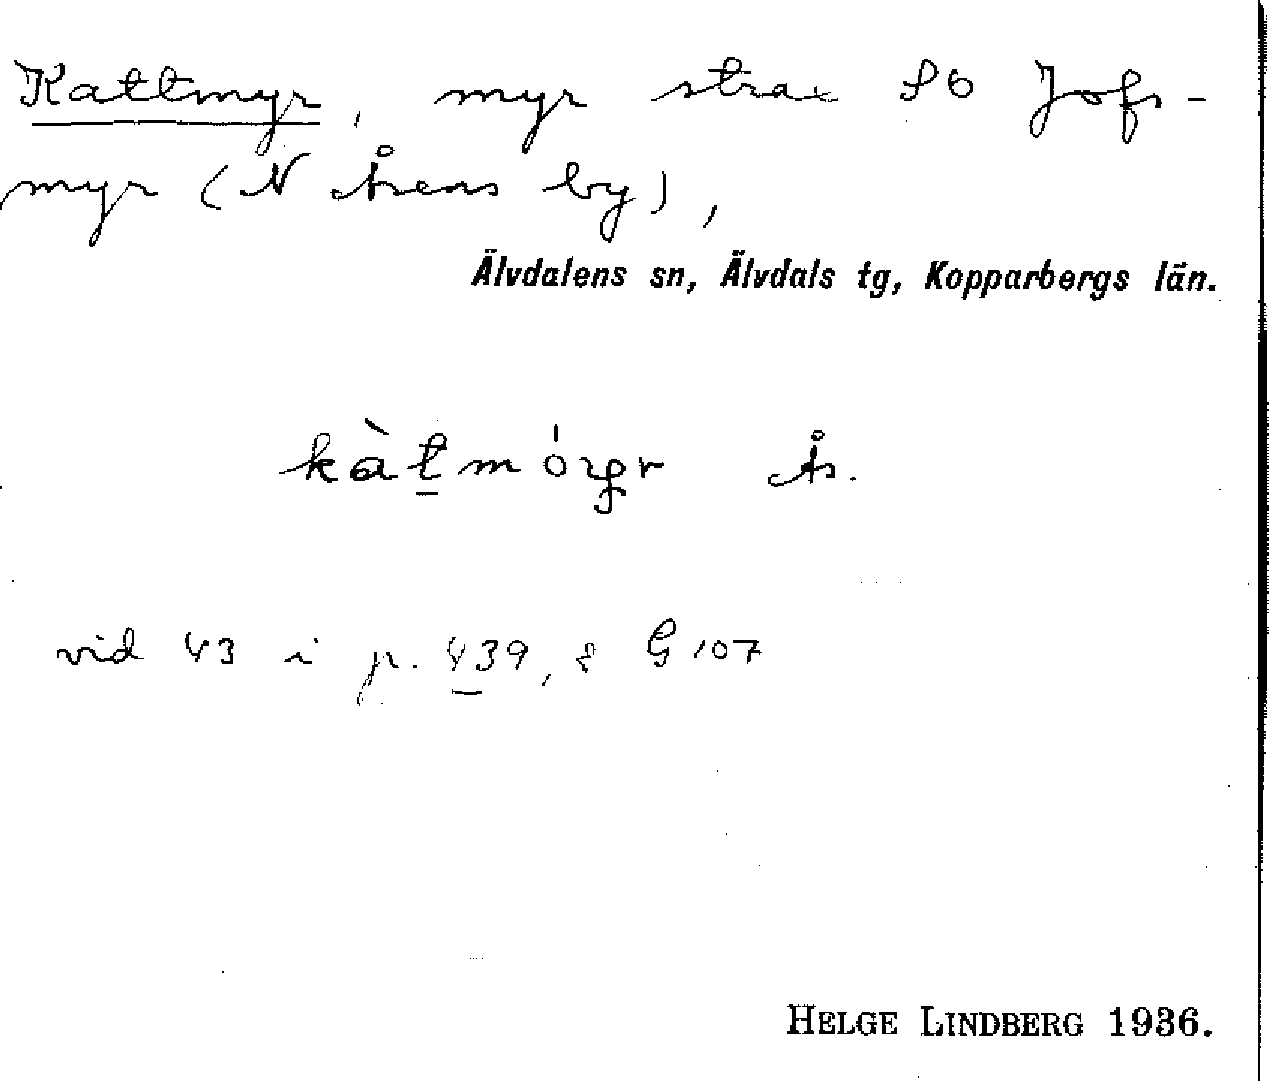 Kattmyr, myr strax SO Jofs-
myr (N Åsens by),
Älvdalens sn, Älvdals tg, Kopparbergs län.
kàt̲mór Ås.
vid 43 i p. 439, & G 107
HELGE LINDBERG 1936.